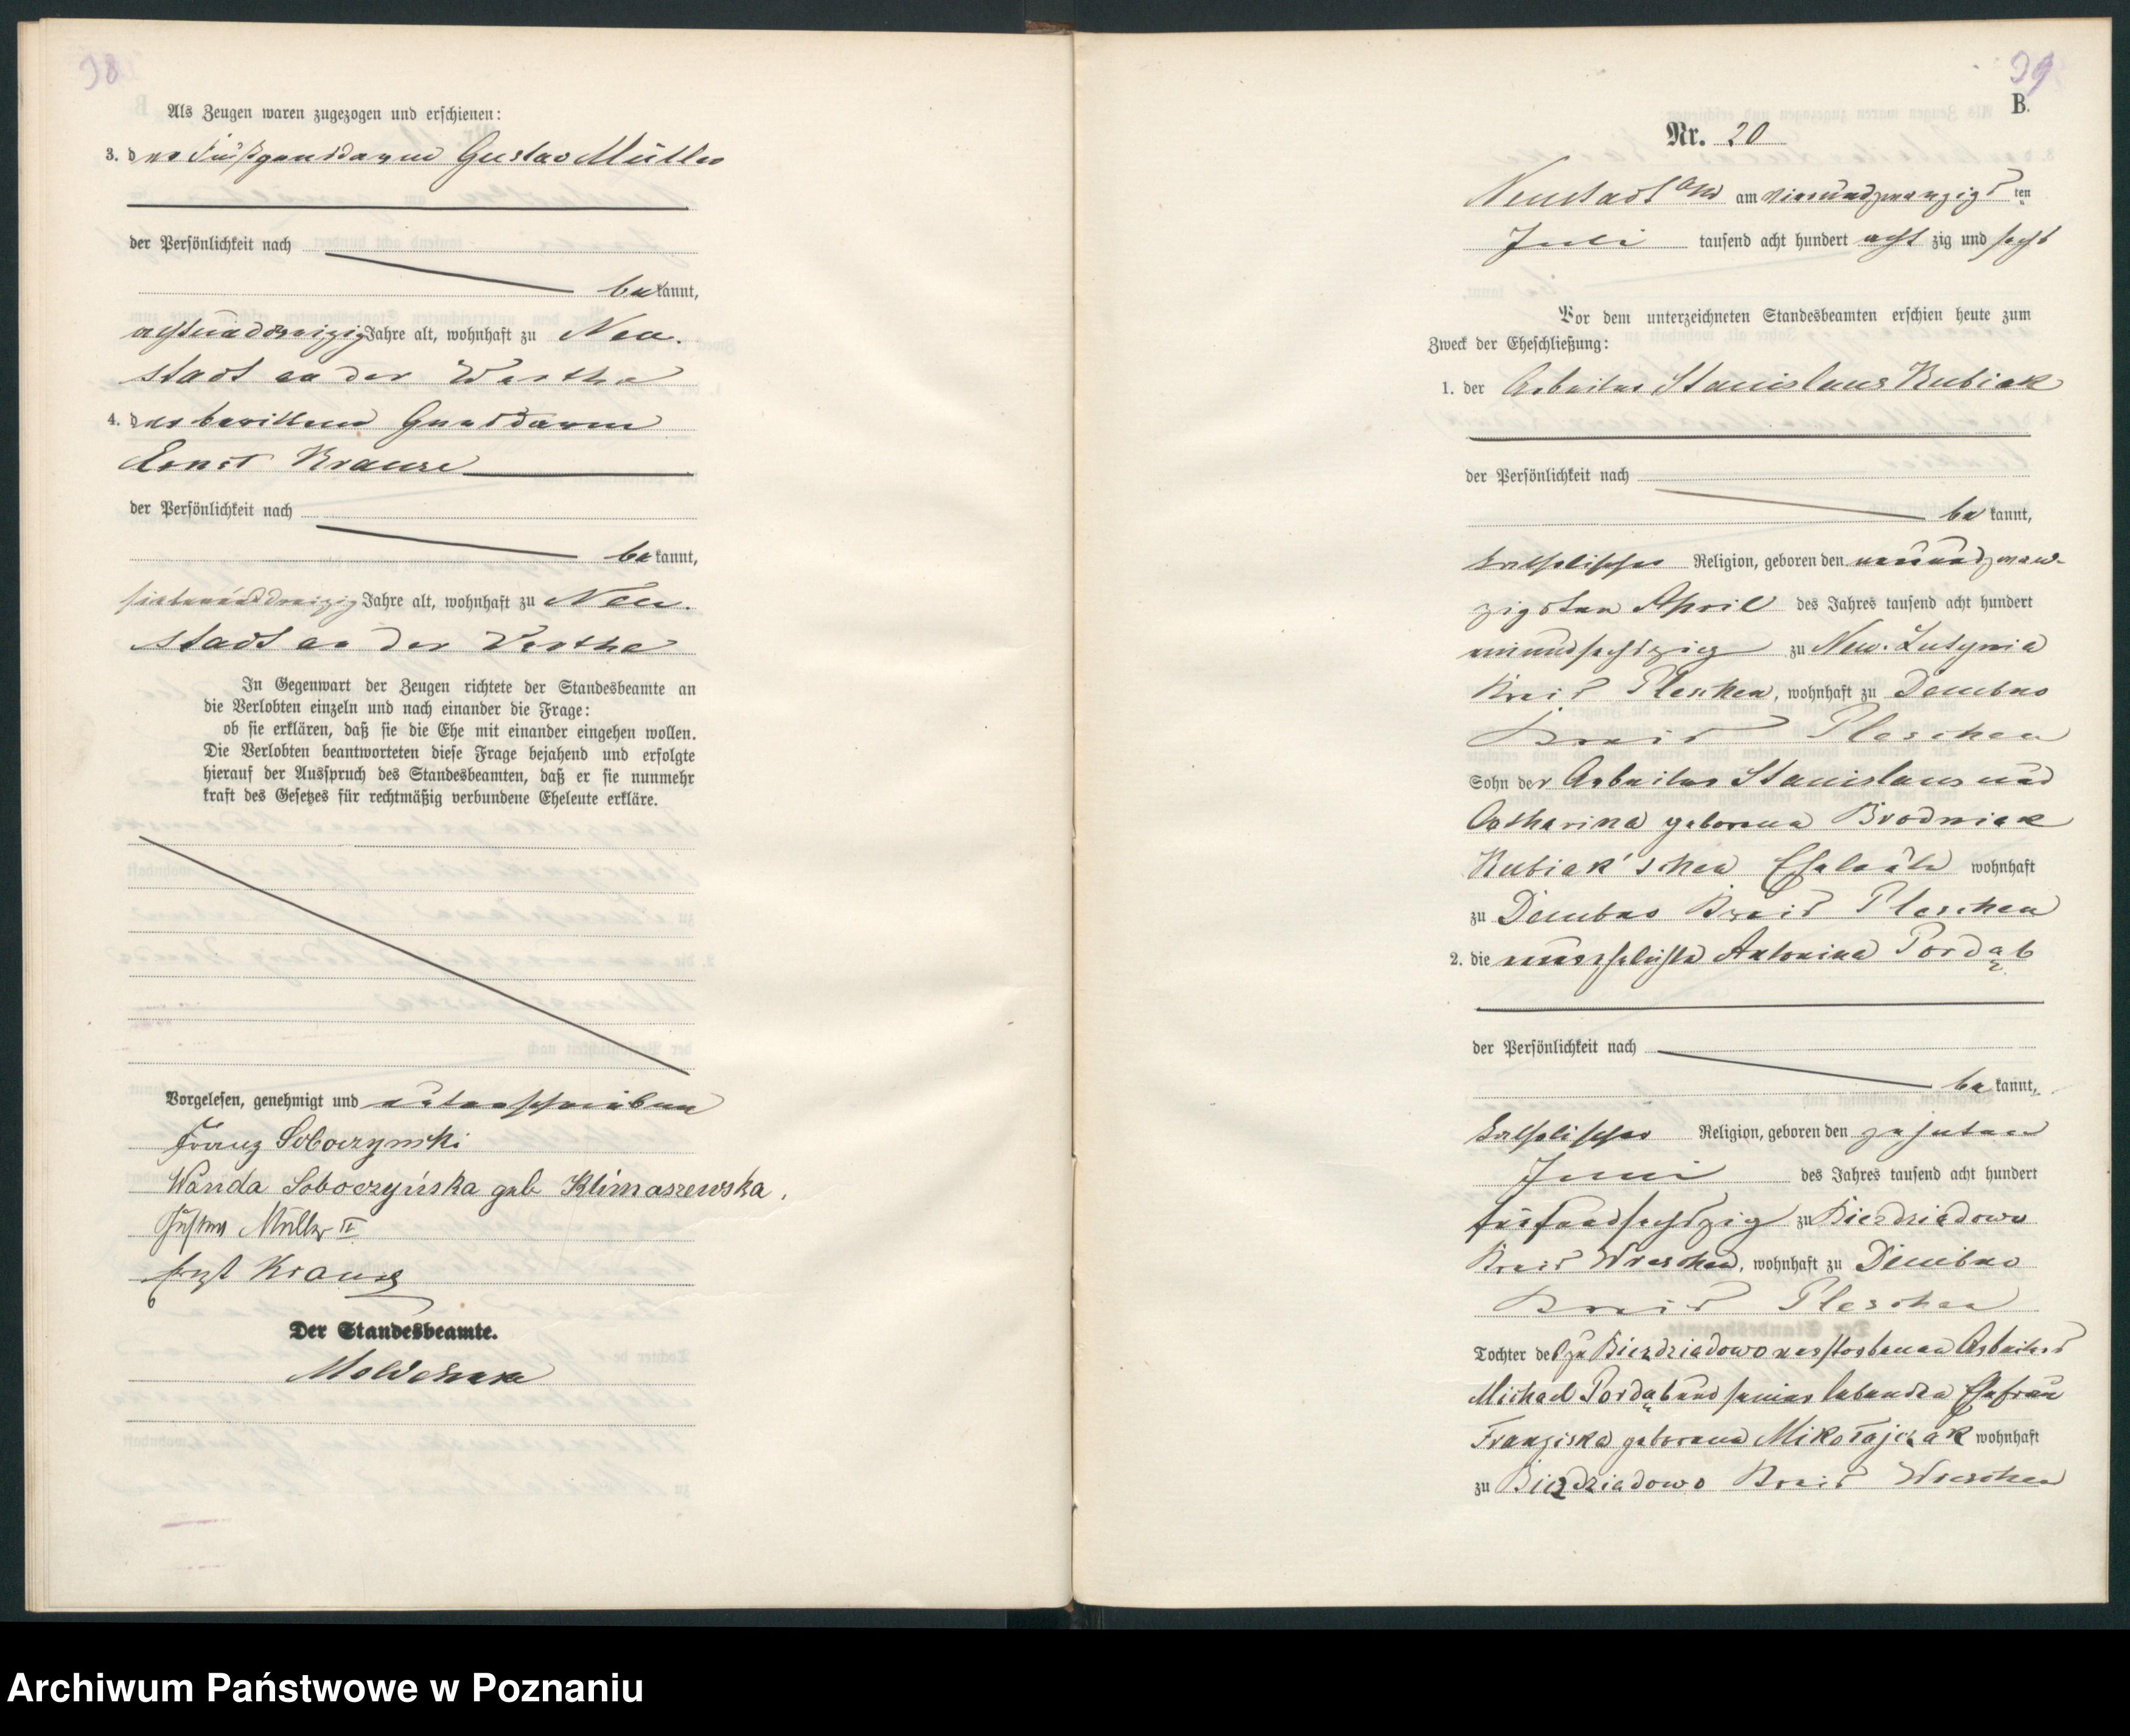 98
Als Zeugen waren zugezogen und erschienen:
3. der Fußgendarm Gustav Müller
der Persönlichkeit nach
bekannt,
achtunddreizig Jahre alt, wohnhaft zu Neu-
stadt an der Warthe
4. der berittene Gendarm
Ernst Krause
der Persönlichkeit nach
bekannt,
siebenunddreizig Jahre alt, wohnhaft zu Neu-
stadt an der Warthe
In Gegenwart der Zeugen richtete der Standesbeamte an
die Verlobten einzeln und nach einander die Frage:
ob sie erklären, daß sie die Ehe mit einander eingehen wollen.
Die Verlobten beantworteten diese Frage bejahend und erfolgte
hierauf der Ausspruch des Standesbeamten, daß er sie nunmehr
kraft des Gesetzes für rechtmäßig verbundene Eheleute erkläre.
Vorgelesen, genehmigt und unterschrieben
Franz Soboczynski
Wanda Soboczyńska geb Klimaszewska.
Gustav Müller II
Ernst Krause
Der Standesbeamte.
99
B.
Nr. 20
Neustadt a/W am vierundzwanzigsten
Juli tausend acht hundert achtzig und sechs
Vor dem unterzeichneten Standesbeamten erschien heute zum
Zweck der Eheschließung:
1. der Arbeiter Stanislaus Kubiak
der Persönlichkeit nach
bekannt,
katholischer Religion, geboren den neunundzwan-
zigsten April des Jahres tausend acht hundert
einundsechszig zu Neu-Lutynia
Kreis Pleschen, wohnhaft zu Dembno
Kreis Pleschen
Sohn der Arbeiter Stanislaus und
Catharina geborene Brodniak
Kubiak'schen Eheleute wohnhaft
zu Dembno Kreis Pleschen
2. die unverehelichte Antonina Pordąb
der Persönlichkeit nach
bekannt,
katholischer Religion, geboren den zehnten
Juni des Jahres tausend acht hundert
fünfundsechszig zu Biezdziadowo
Kreis Wreschen, wohnhaft zu Dembno
Kreis Pleschen
Tochter des zu Biezdziadowo verstorbenen Arbeiters
Michael Pordąb und seiner lebenden Ehefrau
Franziska geborene Mikołajczak wohnhaft
zu Biezdziadowo Kreis Wreschen
Archiwum Państwowe w Poznaniu